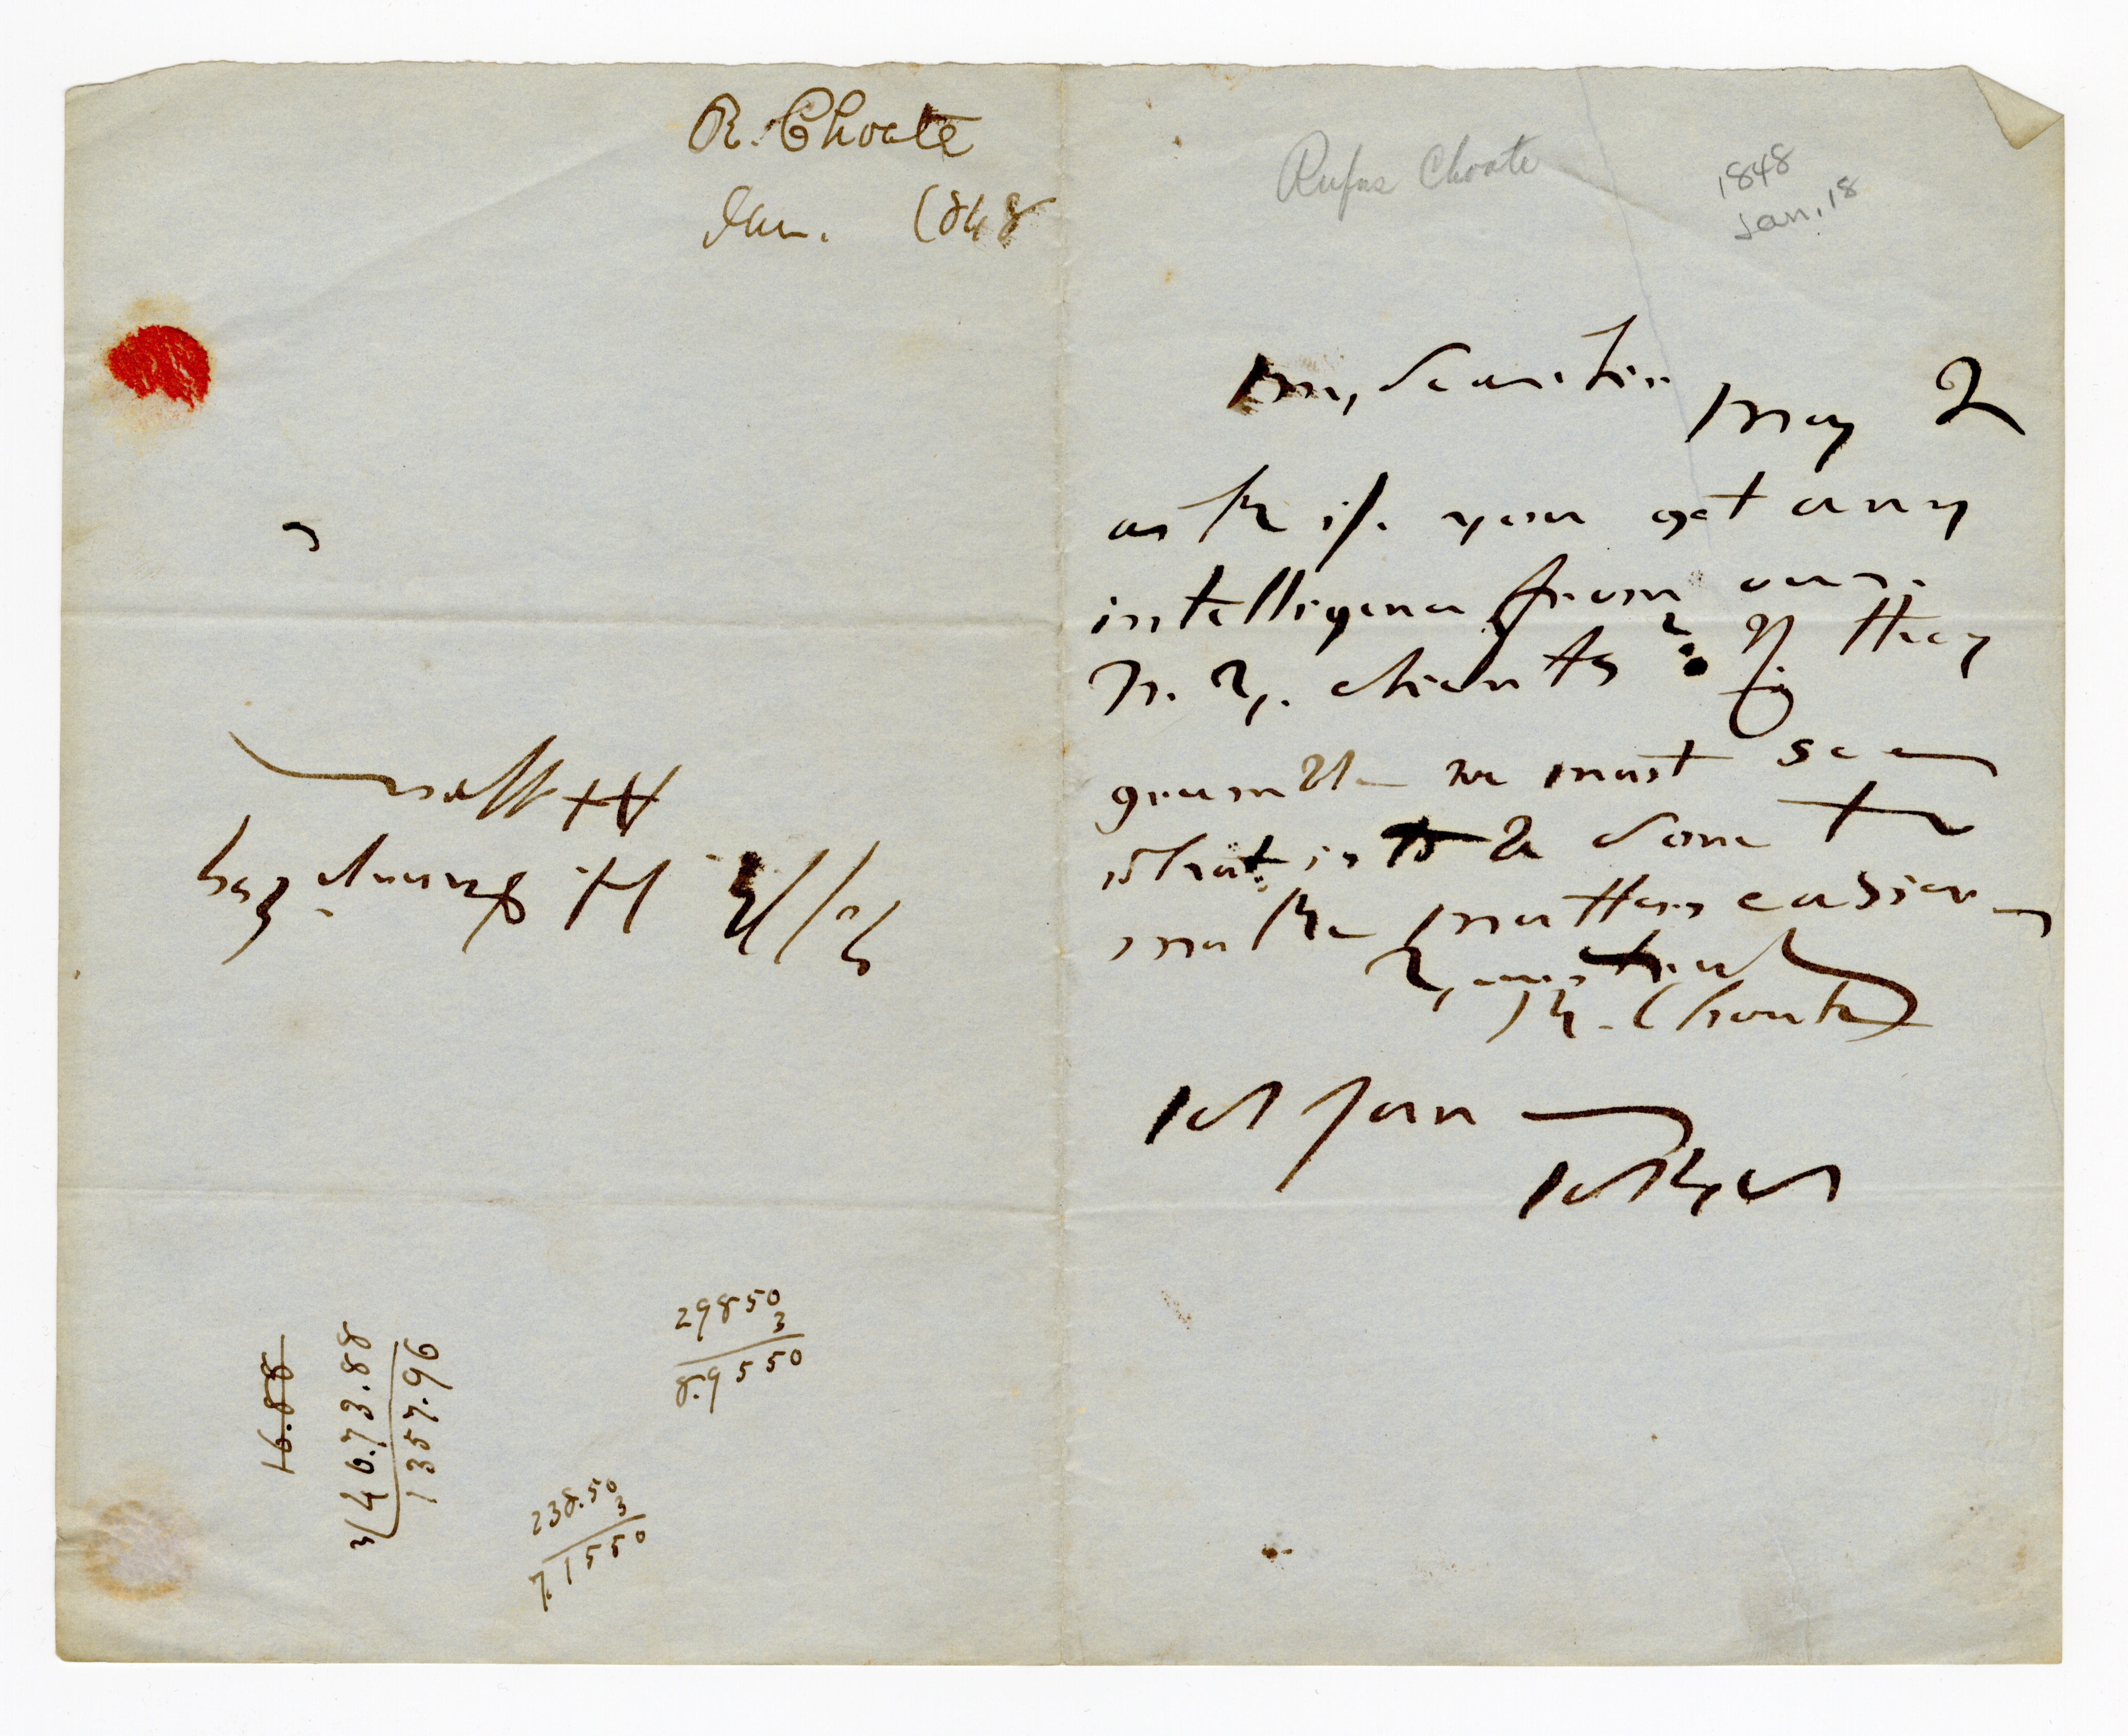 R. Choate
Jan. 1848
Rufus Choate
1848
Jan. 18
My dear sir
May I
ask if you get any
intelligence from our
N. Y. clients? If they
grumble we must see
what is to be done to
make matters easier
Yours truly
R. Choate
18 Jan
F. H. Esq
Att
16.88
3 ) 40.73.88
1357.96
29850
3
8.9550
238.50
3
7.1550